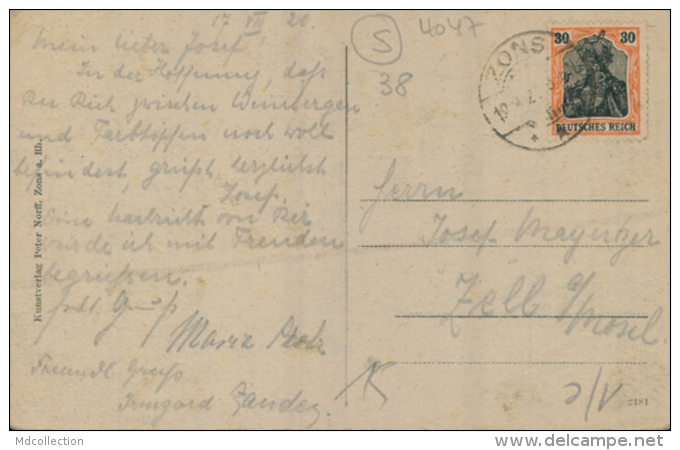 17 VII 20.
Mein lieber Josef!
In der Hoffnung, daß
Du Dich zwischen Weinbergen
und Farbtöpfen noch wohl
befindest, grüßt herzlichst
Josef.
Eine Nachricht von Dir
würde ich mit Freuden
begrüßen.
Gruß
Maria
Freundl. Gruß
Irmgard Zander
Kunstverlag Peter Norff, Zons a. Rh.
S
4047
38
ZONS
30 30
DEUTSCHES REICH
Herrn
Josef
Zell a/
Mosel.
2181
Mdcollection
www.delcampe.net